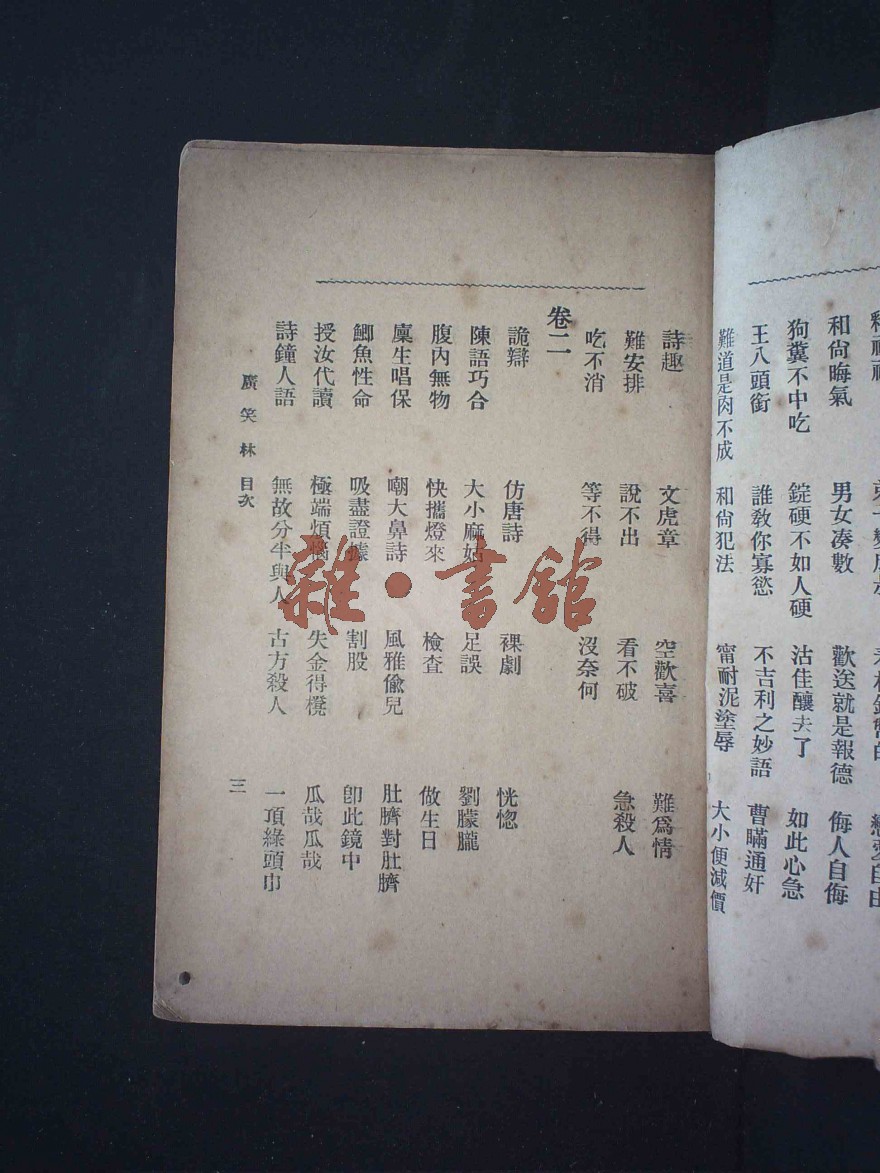 和尚晦氣 男女凑數 歡送就是報德 侮人自侮
狗糞不中吃 錠硬不如人硬 沽佳釀去了 如此心急
王八頭銜 誰敎你寡慾 不吉利之妙語 曹瞞通奸
難道是肉不成 和尚犯法 甯耐泥塗辱 大小便減價
詩趣 文虎章 空歡喜 難爲情
難安排 說不出 看不破 急殺人
吃不消 等不得 沒奈何
卷二
詭辯 仿唐詩 裸劇 恍惚
陳語巧合 大小麻姑 足誤 劉朦朧
腹內無物 快攜燈來 檢査 做生日
廩生唱保 嘲大鼻詩 風雅偸兒 肚臍對肚臍
鯽魚性命 吸盡證據 割股 卽此鏡中
授汝代讀 極端煩惱 失金得櫈 瓜哉瓜哉
詩鐘人語 無故分半與人 古方殺人 一頂綠頭巾
廣笑林 目次
三
雜·書館